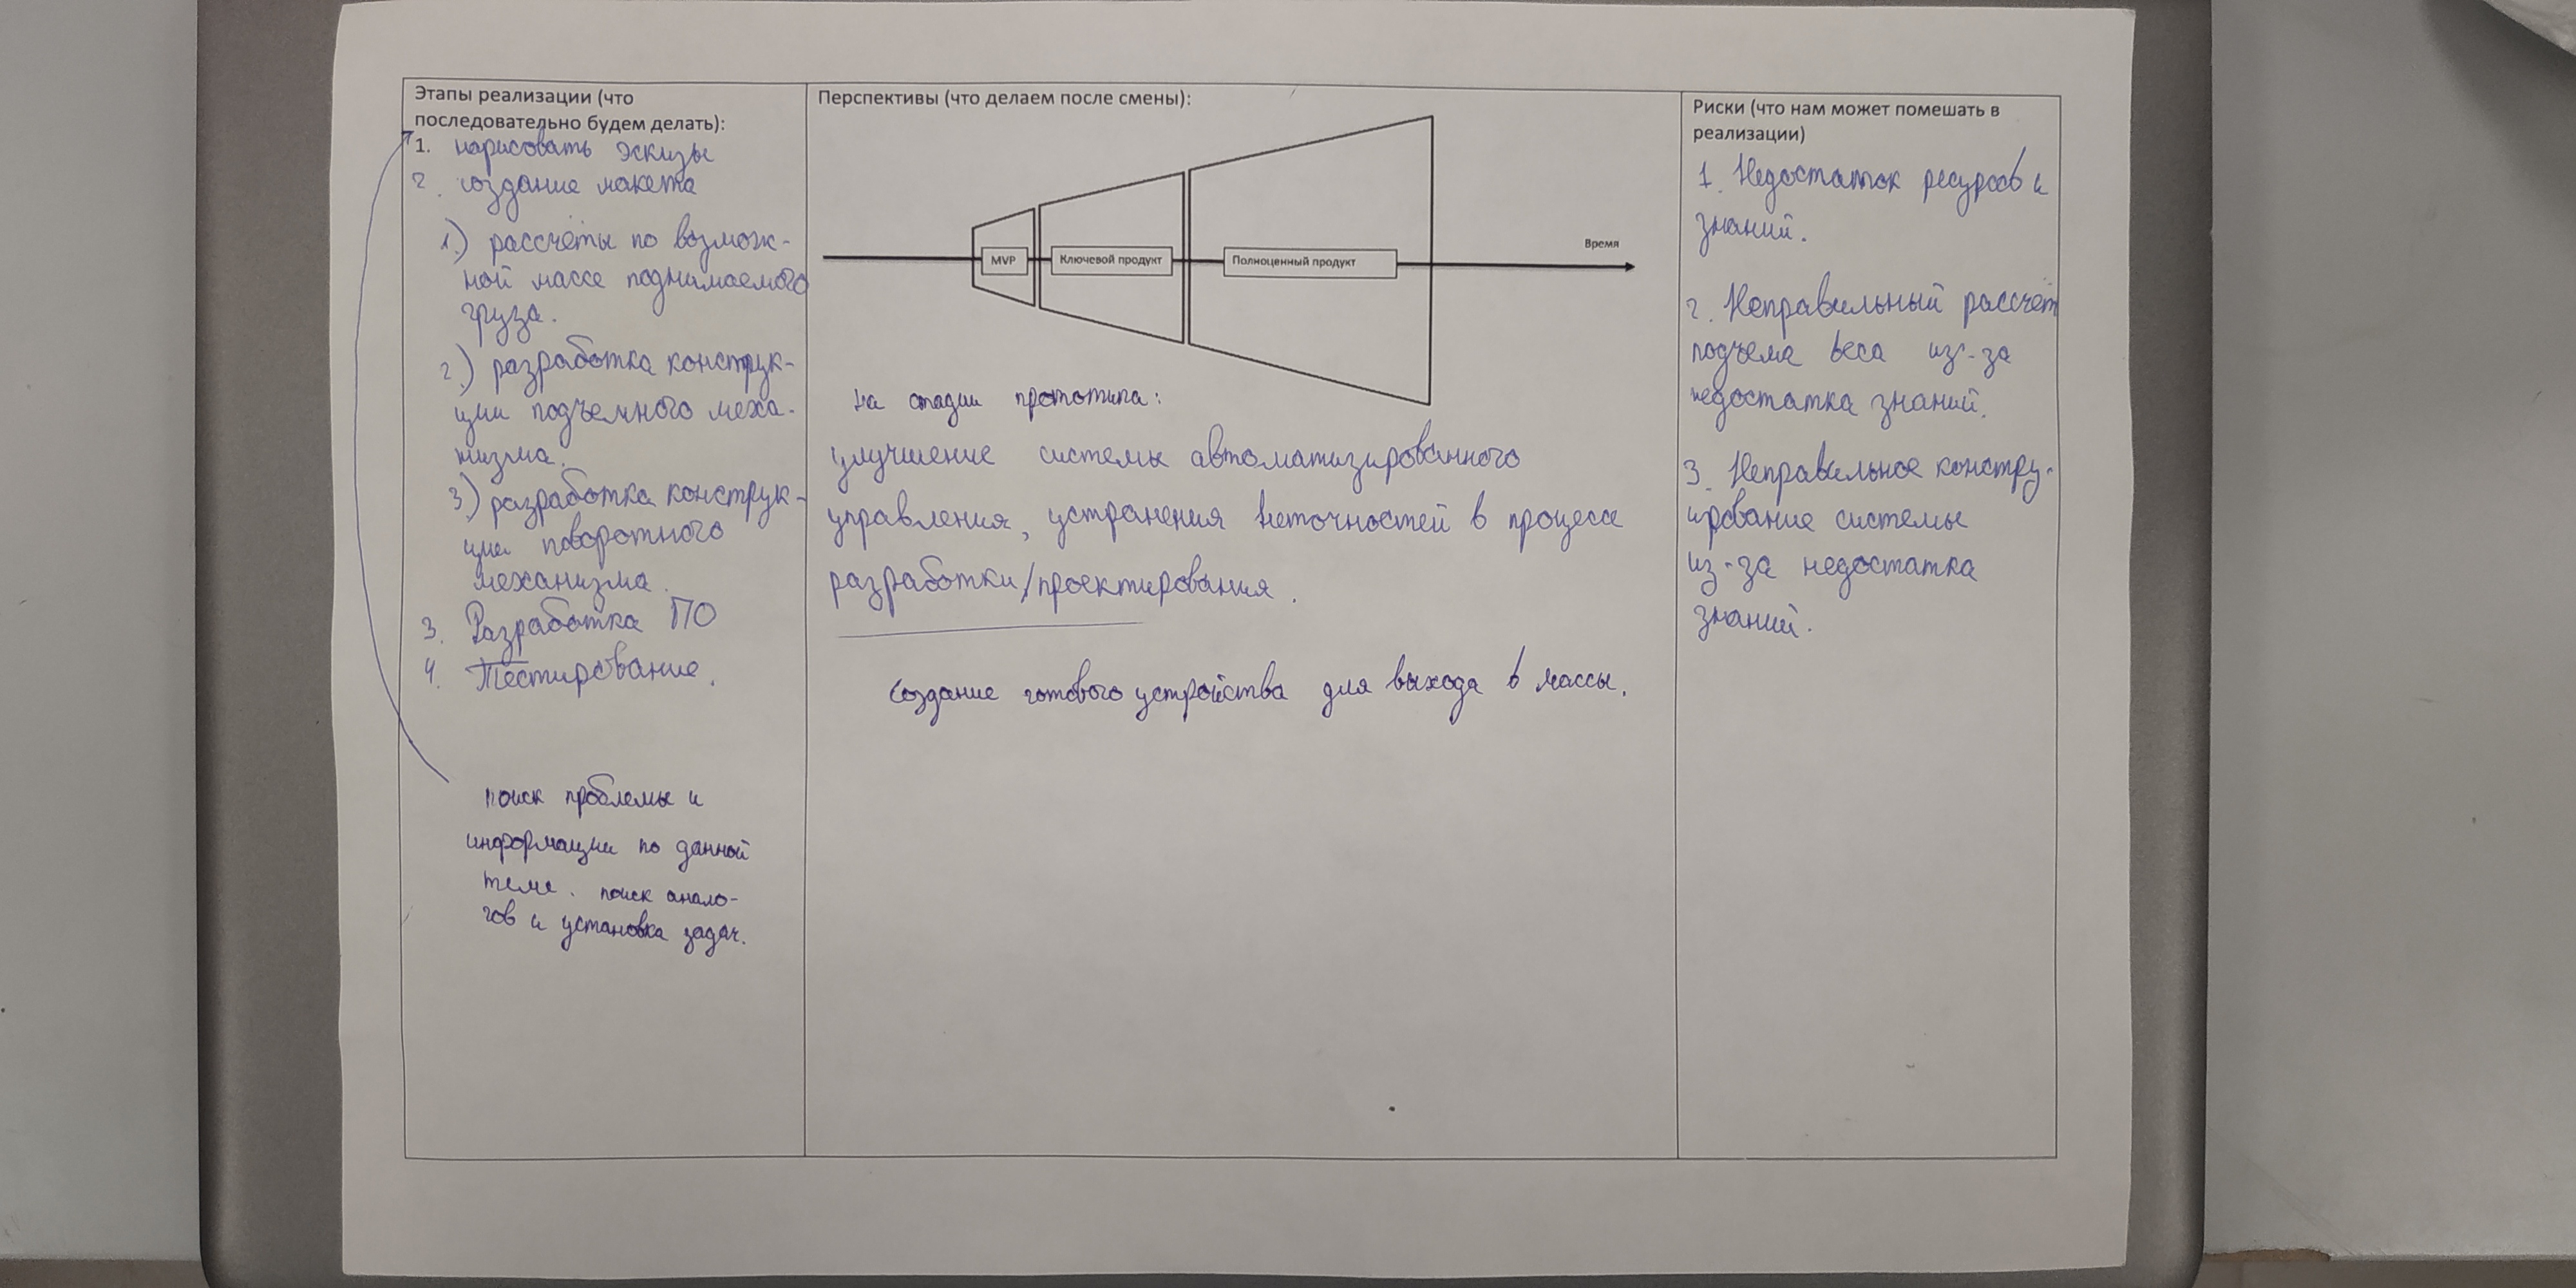 Этапы реализации (что
последовательно будем делать):
1. нарисовать эскизы
2. создание макета
1.) рассчёты по возмож-
ной массе поднимаемого
груза.
2.) разработка конструк-
ции подъемного меха-
низма.
3.) разработка конструк-
ции поворотного
механизма.
3. Разработка ПО
4. Тестирование.
поиск проблемы и
информации по данной
теме. поиск анало-
гов и установка задач.
Перспективы (что делаем после смены):
MVP
Ключевой продукт
Полноценный продукт
Время
На стадии прототипа:
улучшение системы автоматизированного
управления, устранения неточностей в процессе
разработки/проектирования.
Создание готового устройства для выхода в массы.
Риски (что нам может помешать в
реализации)
1. Недостаток ресурсов и
знаний.
2. Неправильный рассчет
подъема веса из-за
недостатка знаний.
3. Неправильное констру-
ирование системы
из-за недостатка
знаний.